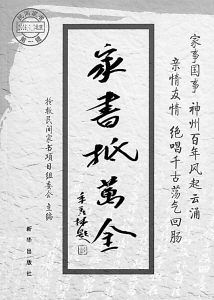 家事国事 神州百年风起云涌
亲情友情 绝唱千古荡气回肠
家書抵萬金
季羡林題
抢救民间家书项目组委会 主编
新华出版社